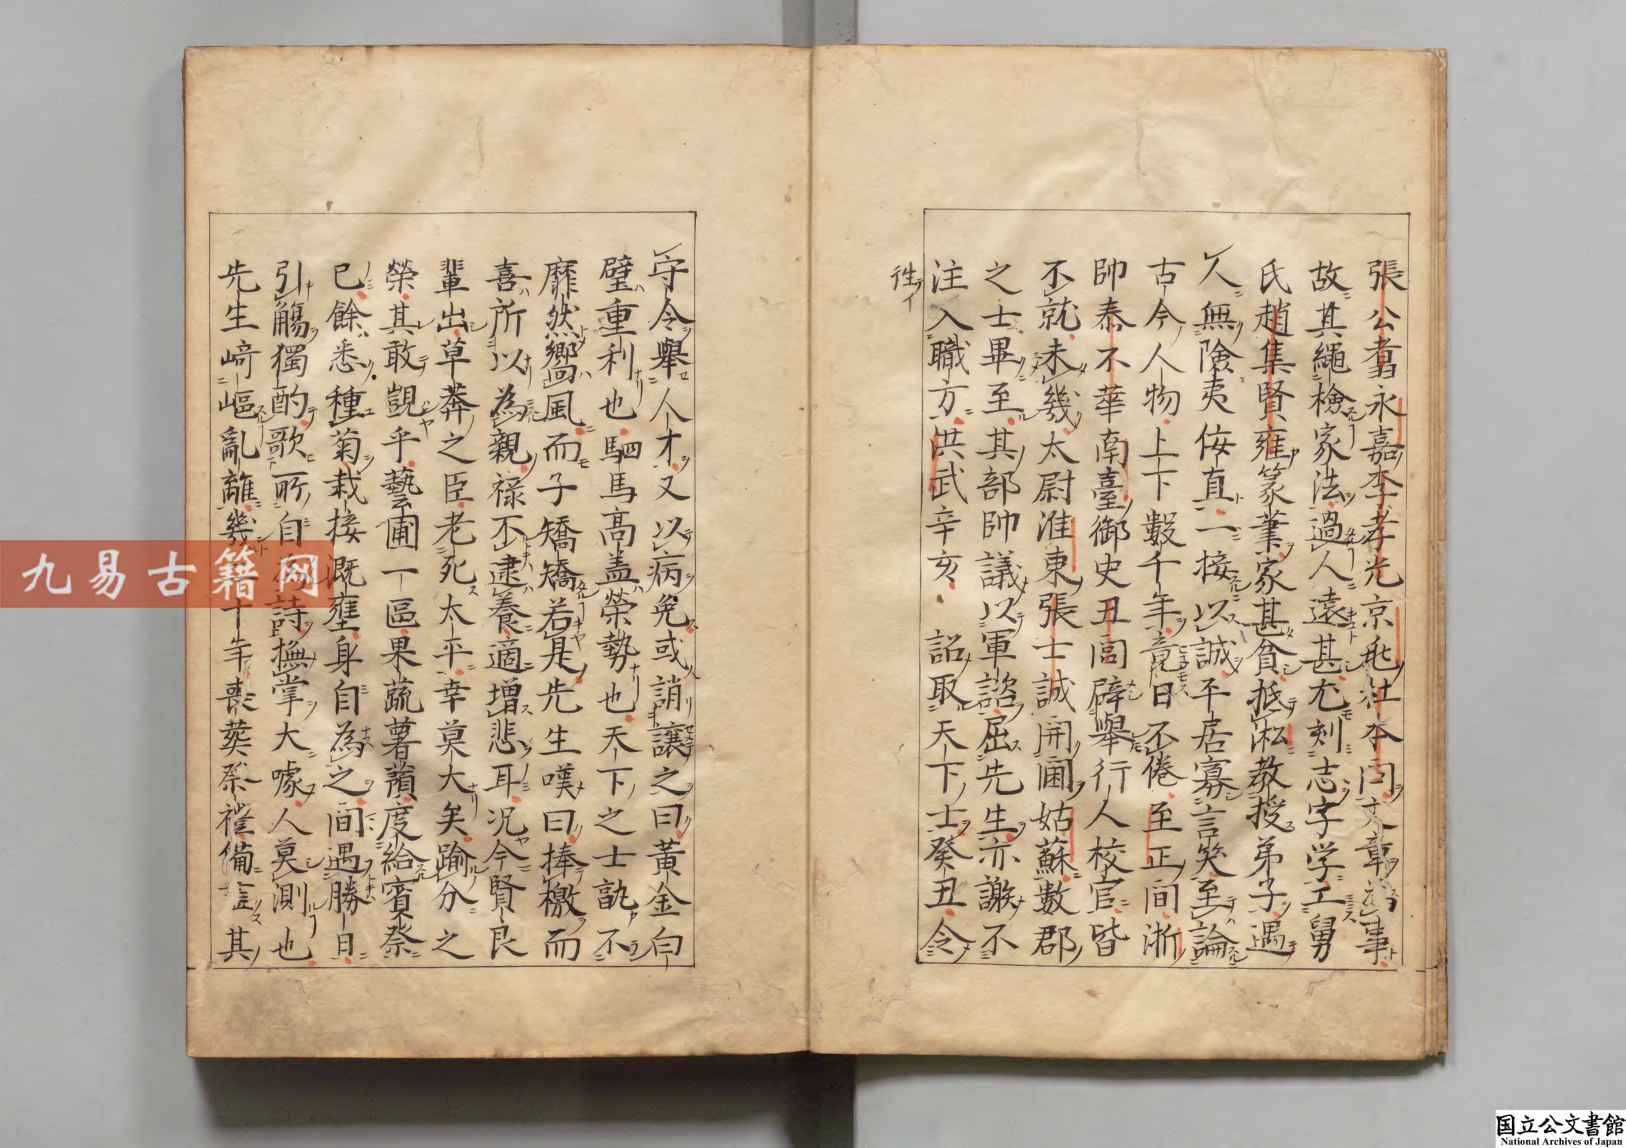 張公翥永嘉李孝光京兆杜本同文章事
故其繩檢家法過人遠甚尤刻志字学工舅
氏趙集賢雍篆筆家甚貧抵淞教授弟子遇
人無險夷佞直一接以誠平居寡言笑至論
古今人物上下數千年竟日不倦至正間浙
帥泰不華南臺御史丑閭辟舉行人校官皆
不就未幾太尉淮東張士誠開閫姑蘇數郡
之士畢至其部帥議以軍諮屈先生亦謝不
注入職方洪武辛亥詔取天下士癸丑令
徃イ
守令舉人才又以病免或誚讓之曰黄金白
璧重利也駟馬高盖榮勢也天下之士訛不
靡然嚮風而子矯矯若是先生嘆曰捧檄而
喜所以為親禄不逮養適增悲耳况今賢良
輩出草莽之臣老死太平幸莫大矣踰分之
榮其敢覬乎藝圃一區果蔬薯蕷度給賓祭
已餘悉種菊栽接溉壅身自為之間遇勝日
引觴獨酌歌所自詩撫掌大噱人莫測也
先生﨑嶇亂離幾十年喪葬祭禮備言其
九易古籍网
国立公文書館
National Archives of Japan